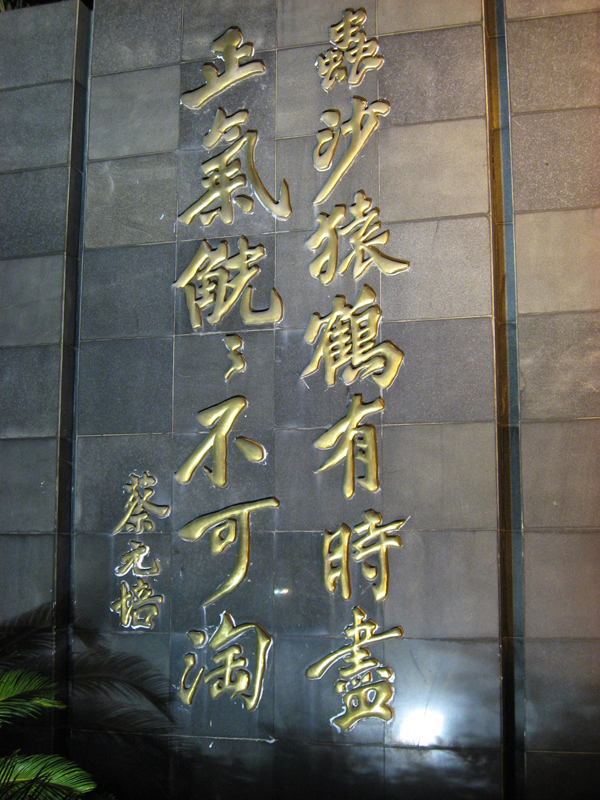 蟲沙猿鶴有時盡
正氣觥〻不可淘
蔡元培